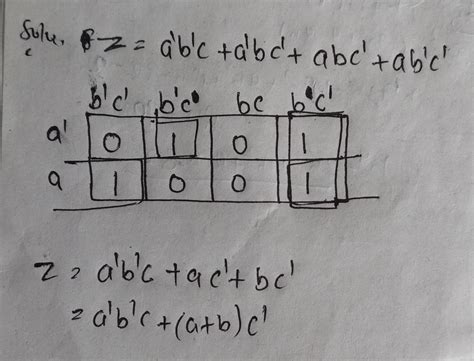 Solu. Z = a'b'c + a'bc' + abc' + ab'c'
b'c' b'c bc b'c'
a' 0 1 0 1
a 1 0 0 1
Z = a'b'c + ac' + bc'
= a'b'c + (a+b)c'